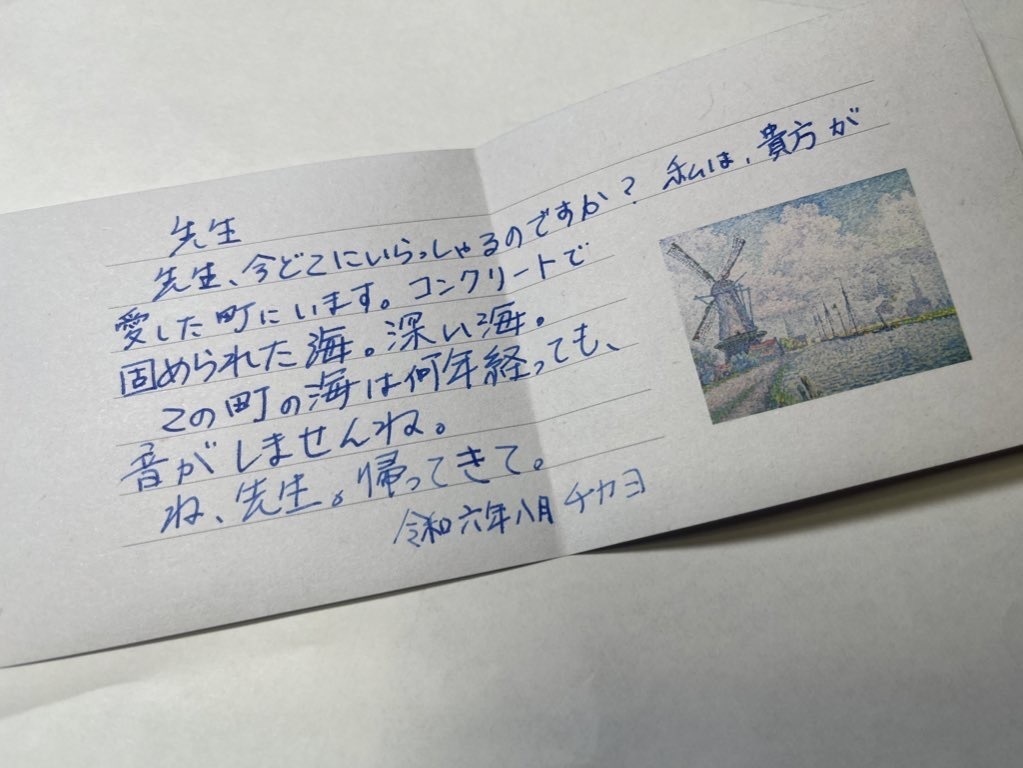 先生
先生、今どこにいらっしゃるのですか？ 私は、貴方が
愛した町にいます。コンクリートで
固められた海。深い海。
この町の海は何年経っても、
音がしませんね。
ね、先生。帰ってきて。
令和六年八月 チカヨ